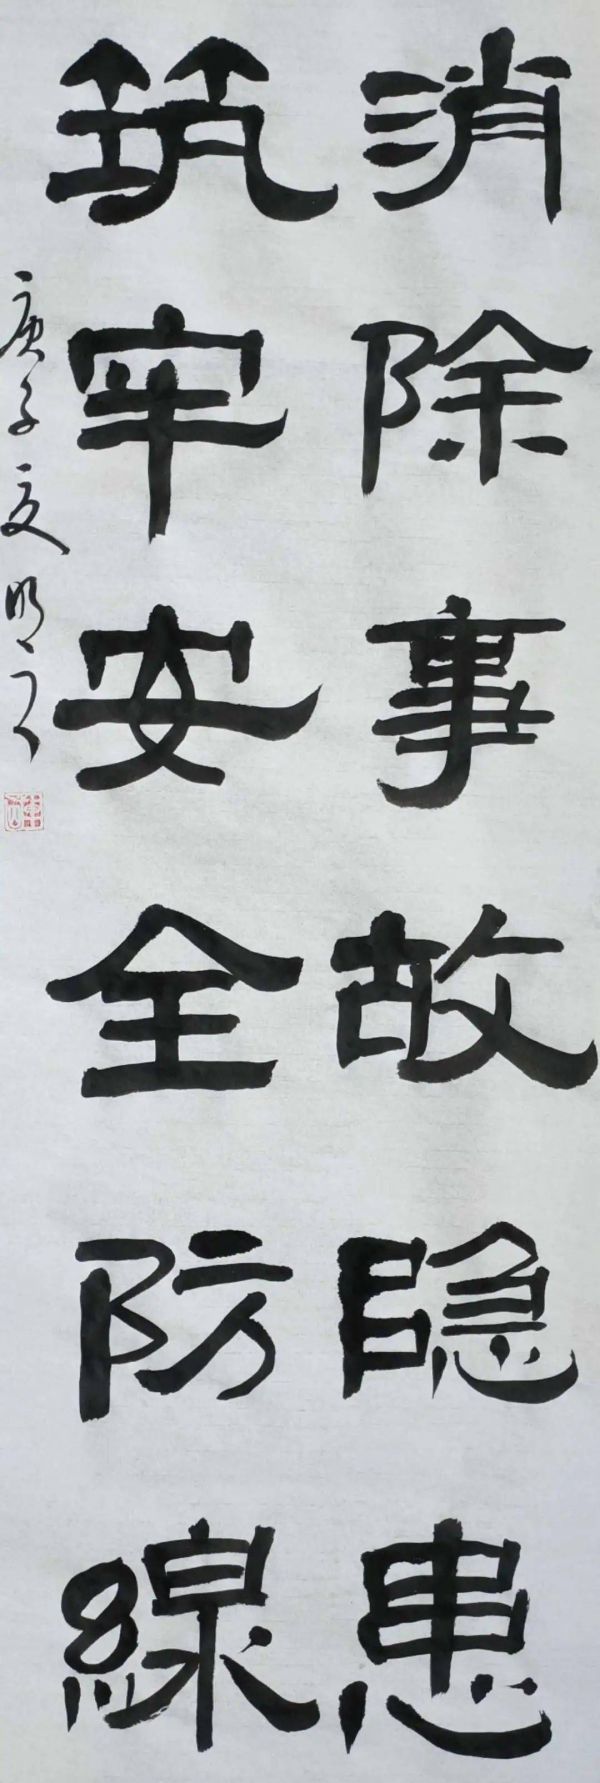 消除事故隐患
筑牢安全防線
庚子夏明